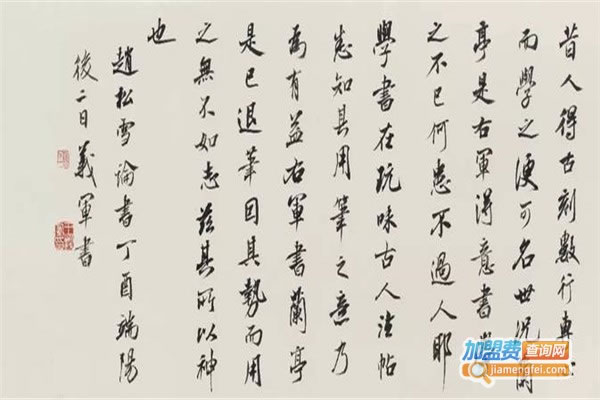 昔人得古刻數行專心
而學之便可名世況蘭
亭是右軍得意書學
之不已何患不過人耶
學書在玩味古人法帖
悉知其用筆之意乃
為有益右軍書蘭亭
是已退筆因其勢而用
之無不如志茲其所以神
也
趙松雪論書丁酉端陽
後二日義軍書
加盟费查询网
jiamengfei.com